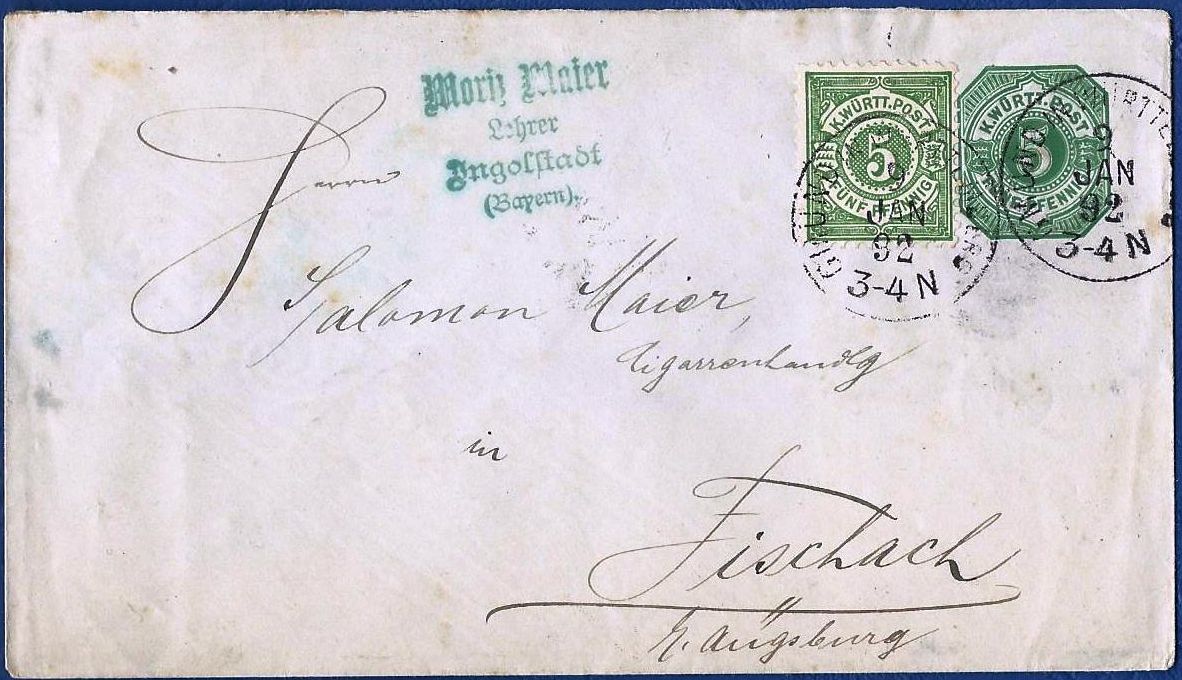 Moritz Maier
Lehrer
Ingolstadt
(Bayern).
K.WÜRTT.POST
5
FÜNF PFENNIG
K.WÜRTT.POST
5
FÜNF PFENNIG
9
JAN
92
3-4 N
9
JAN
92
3-4 N
Herrn
Salomon Maier,
Cigarrenhandlg
in
Fischach
b. Augsburg